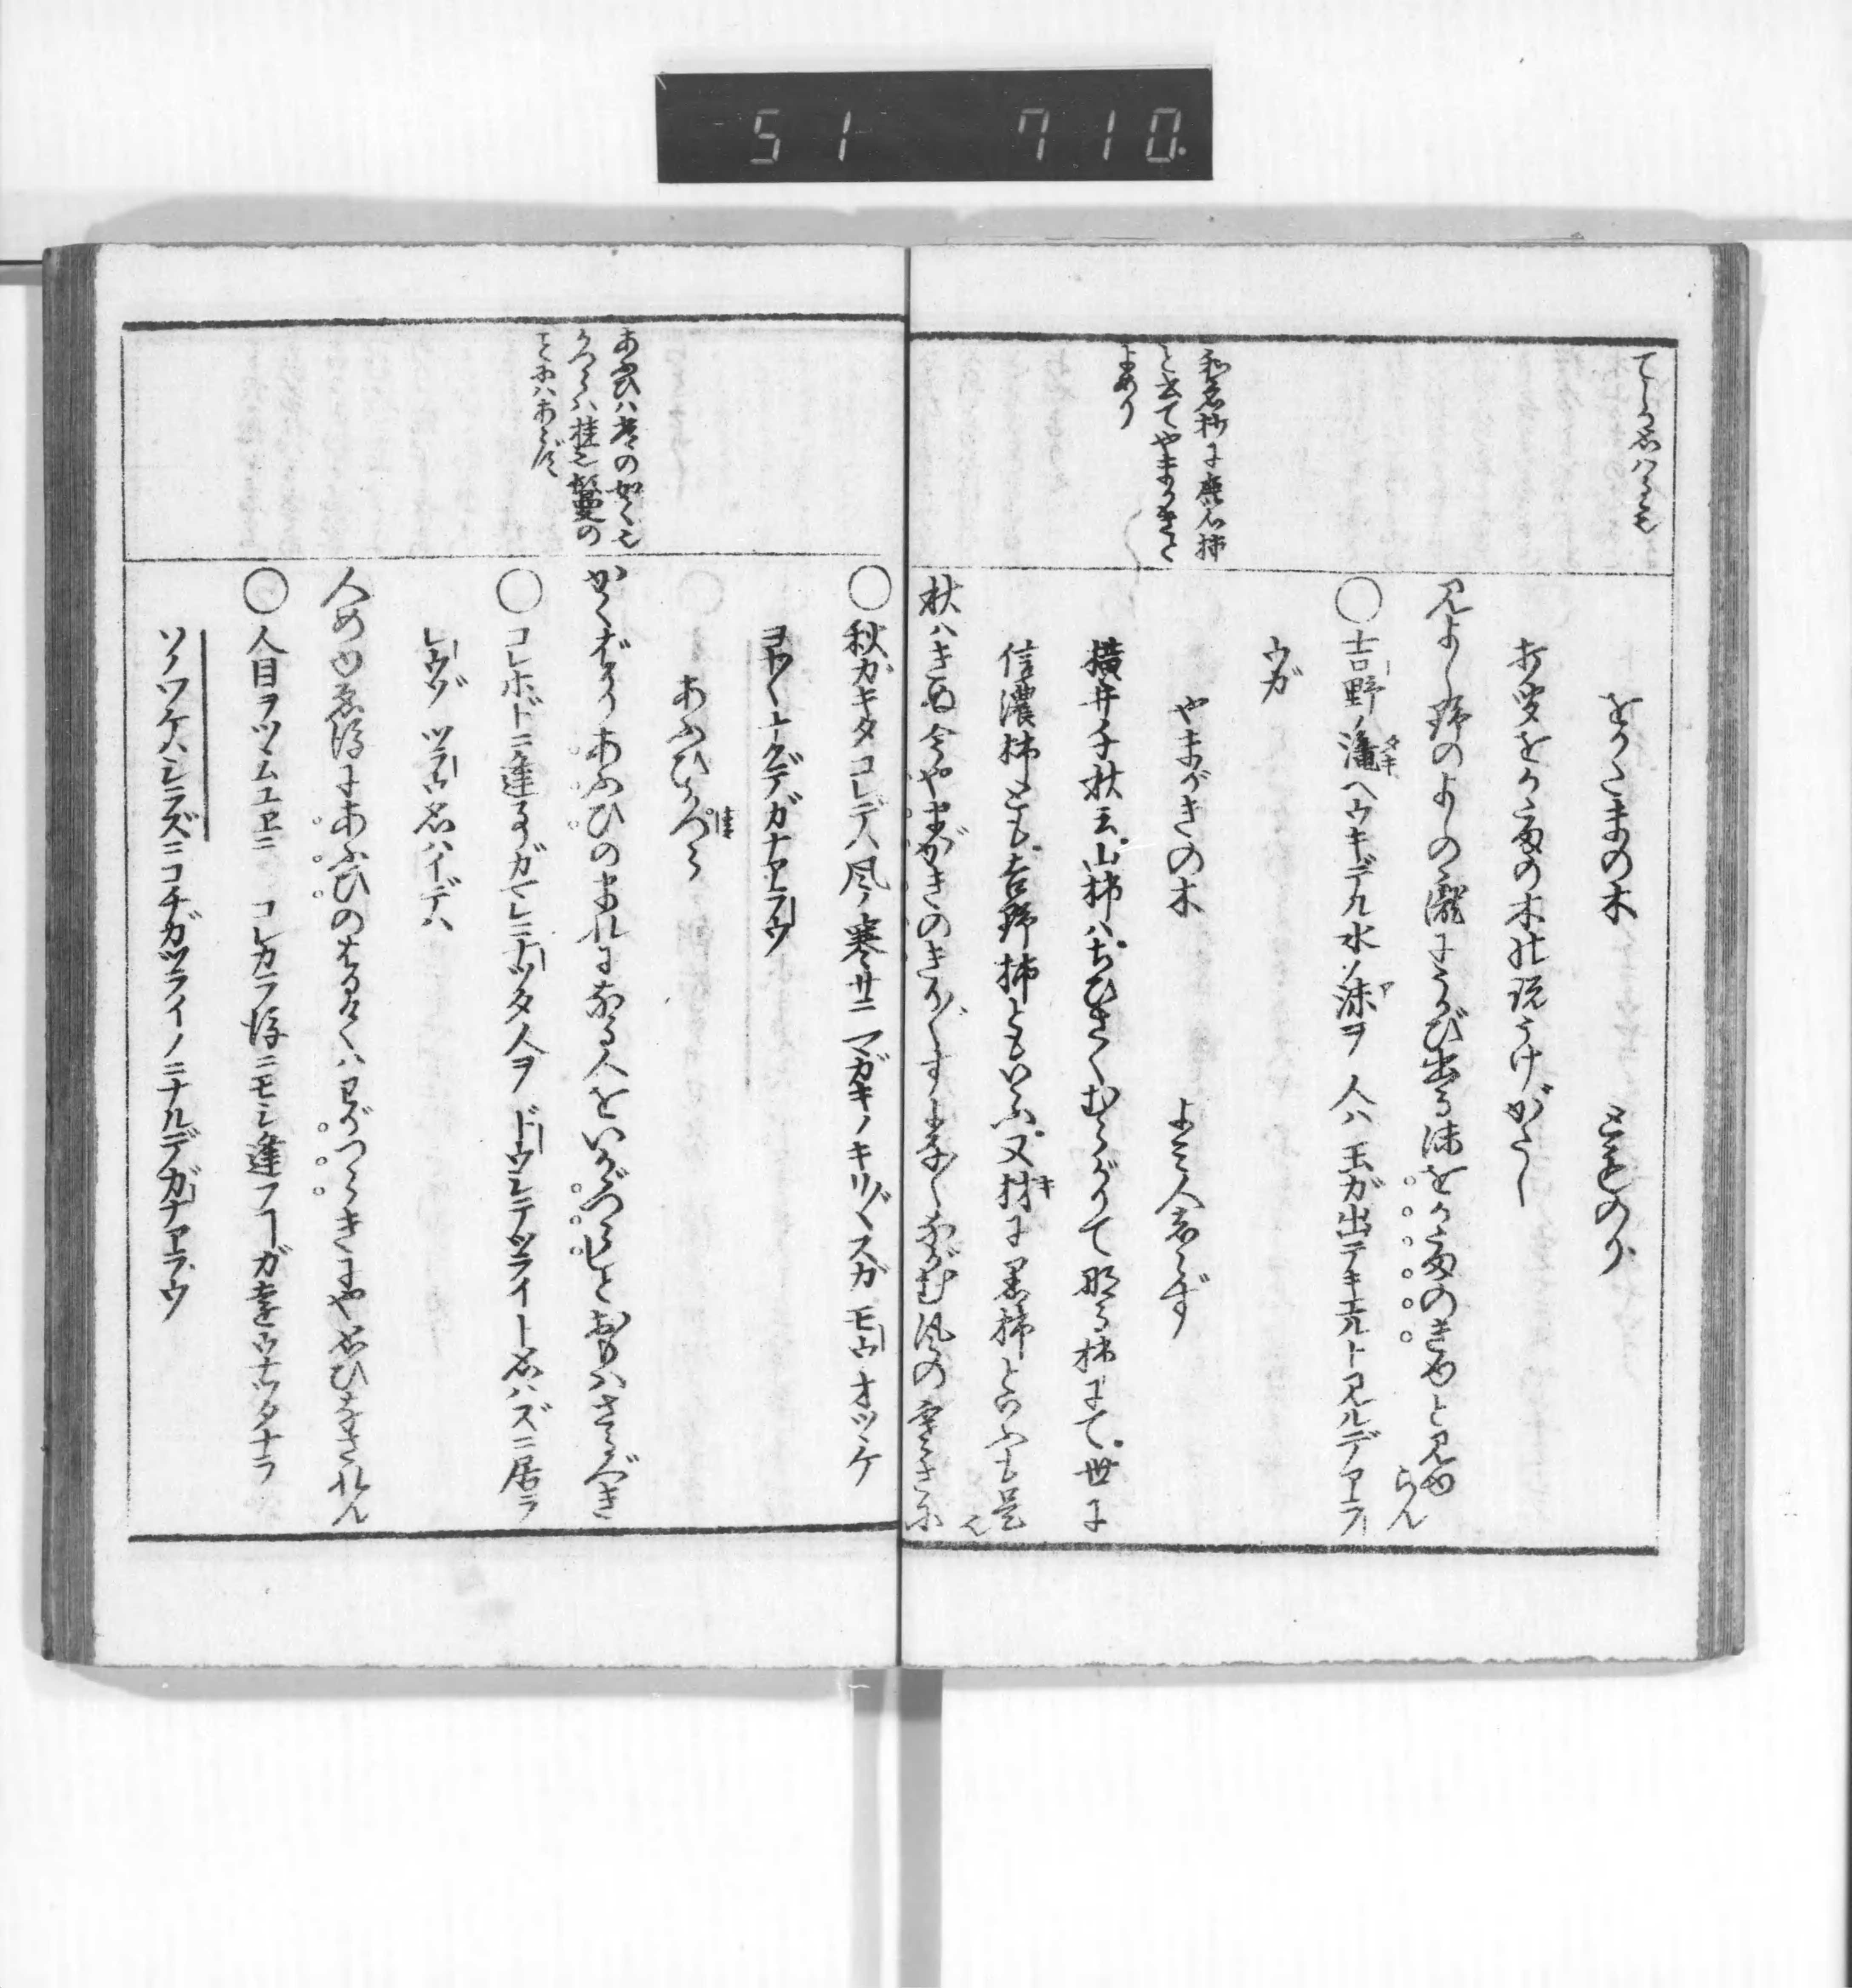 51 710.
てうるハくも
をがたまの木 とものり
打聞をがたまの木の説うけがたし
みよし野のよしの瀧にうかび出る沫をがたまのきゆと見ゆらん
○吉野ノ瀧ヘウキデル水ノ沫ヲ 人ハ 玉ガ出テキエルト見ルデアラ
ウガ
和名抄に鹿心柿
と出てやまがきと
よめり
やまがきの木 よみ人しらず
横井千秋云。山柿ハちひさくむらがりて那る柿にて。世に
信濃柿とも。吉野柿ともいふ。又材に黒柿といふも是也
秋ハきぬ今やまがきのきり〴〵すよな〳〵なかむ風の寒さに
○秋ガキタコレデハ風ノ寒サニ マガキノキリ〴〵スガ モウ オッツケ
ヨサ〳〵ナクデガナアラウ
あふひかつら
桂
あふひハ葵の如くも
かつらハ桂也鬘の
ことにハあらず
かくばかりあふひのまれになる人をいかゞつらしとおもハざるべき
○コレホドニ逢事ガマレニナツタ人ヲ ドウシテツライト思ハズニ居ラ
レウゾ ツラウ思ハイデハ
人めゆゑ後にあふひのはるけくハわがつらきにや思ひなされん
○人目ヲツヽムユヱニ コレカラ後ニモシ逢フ事ガ遠ウナツタナラ
ソノワケハシラズニコチガツライノニナルデガナアラウ